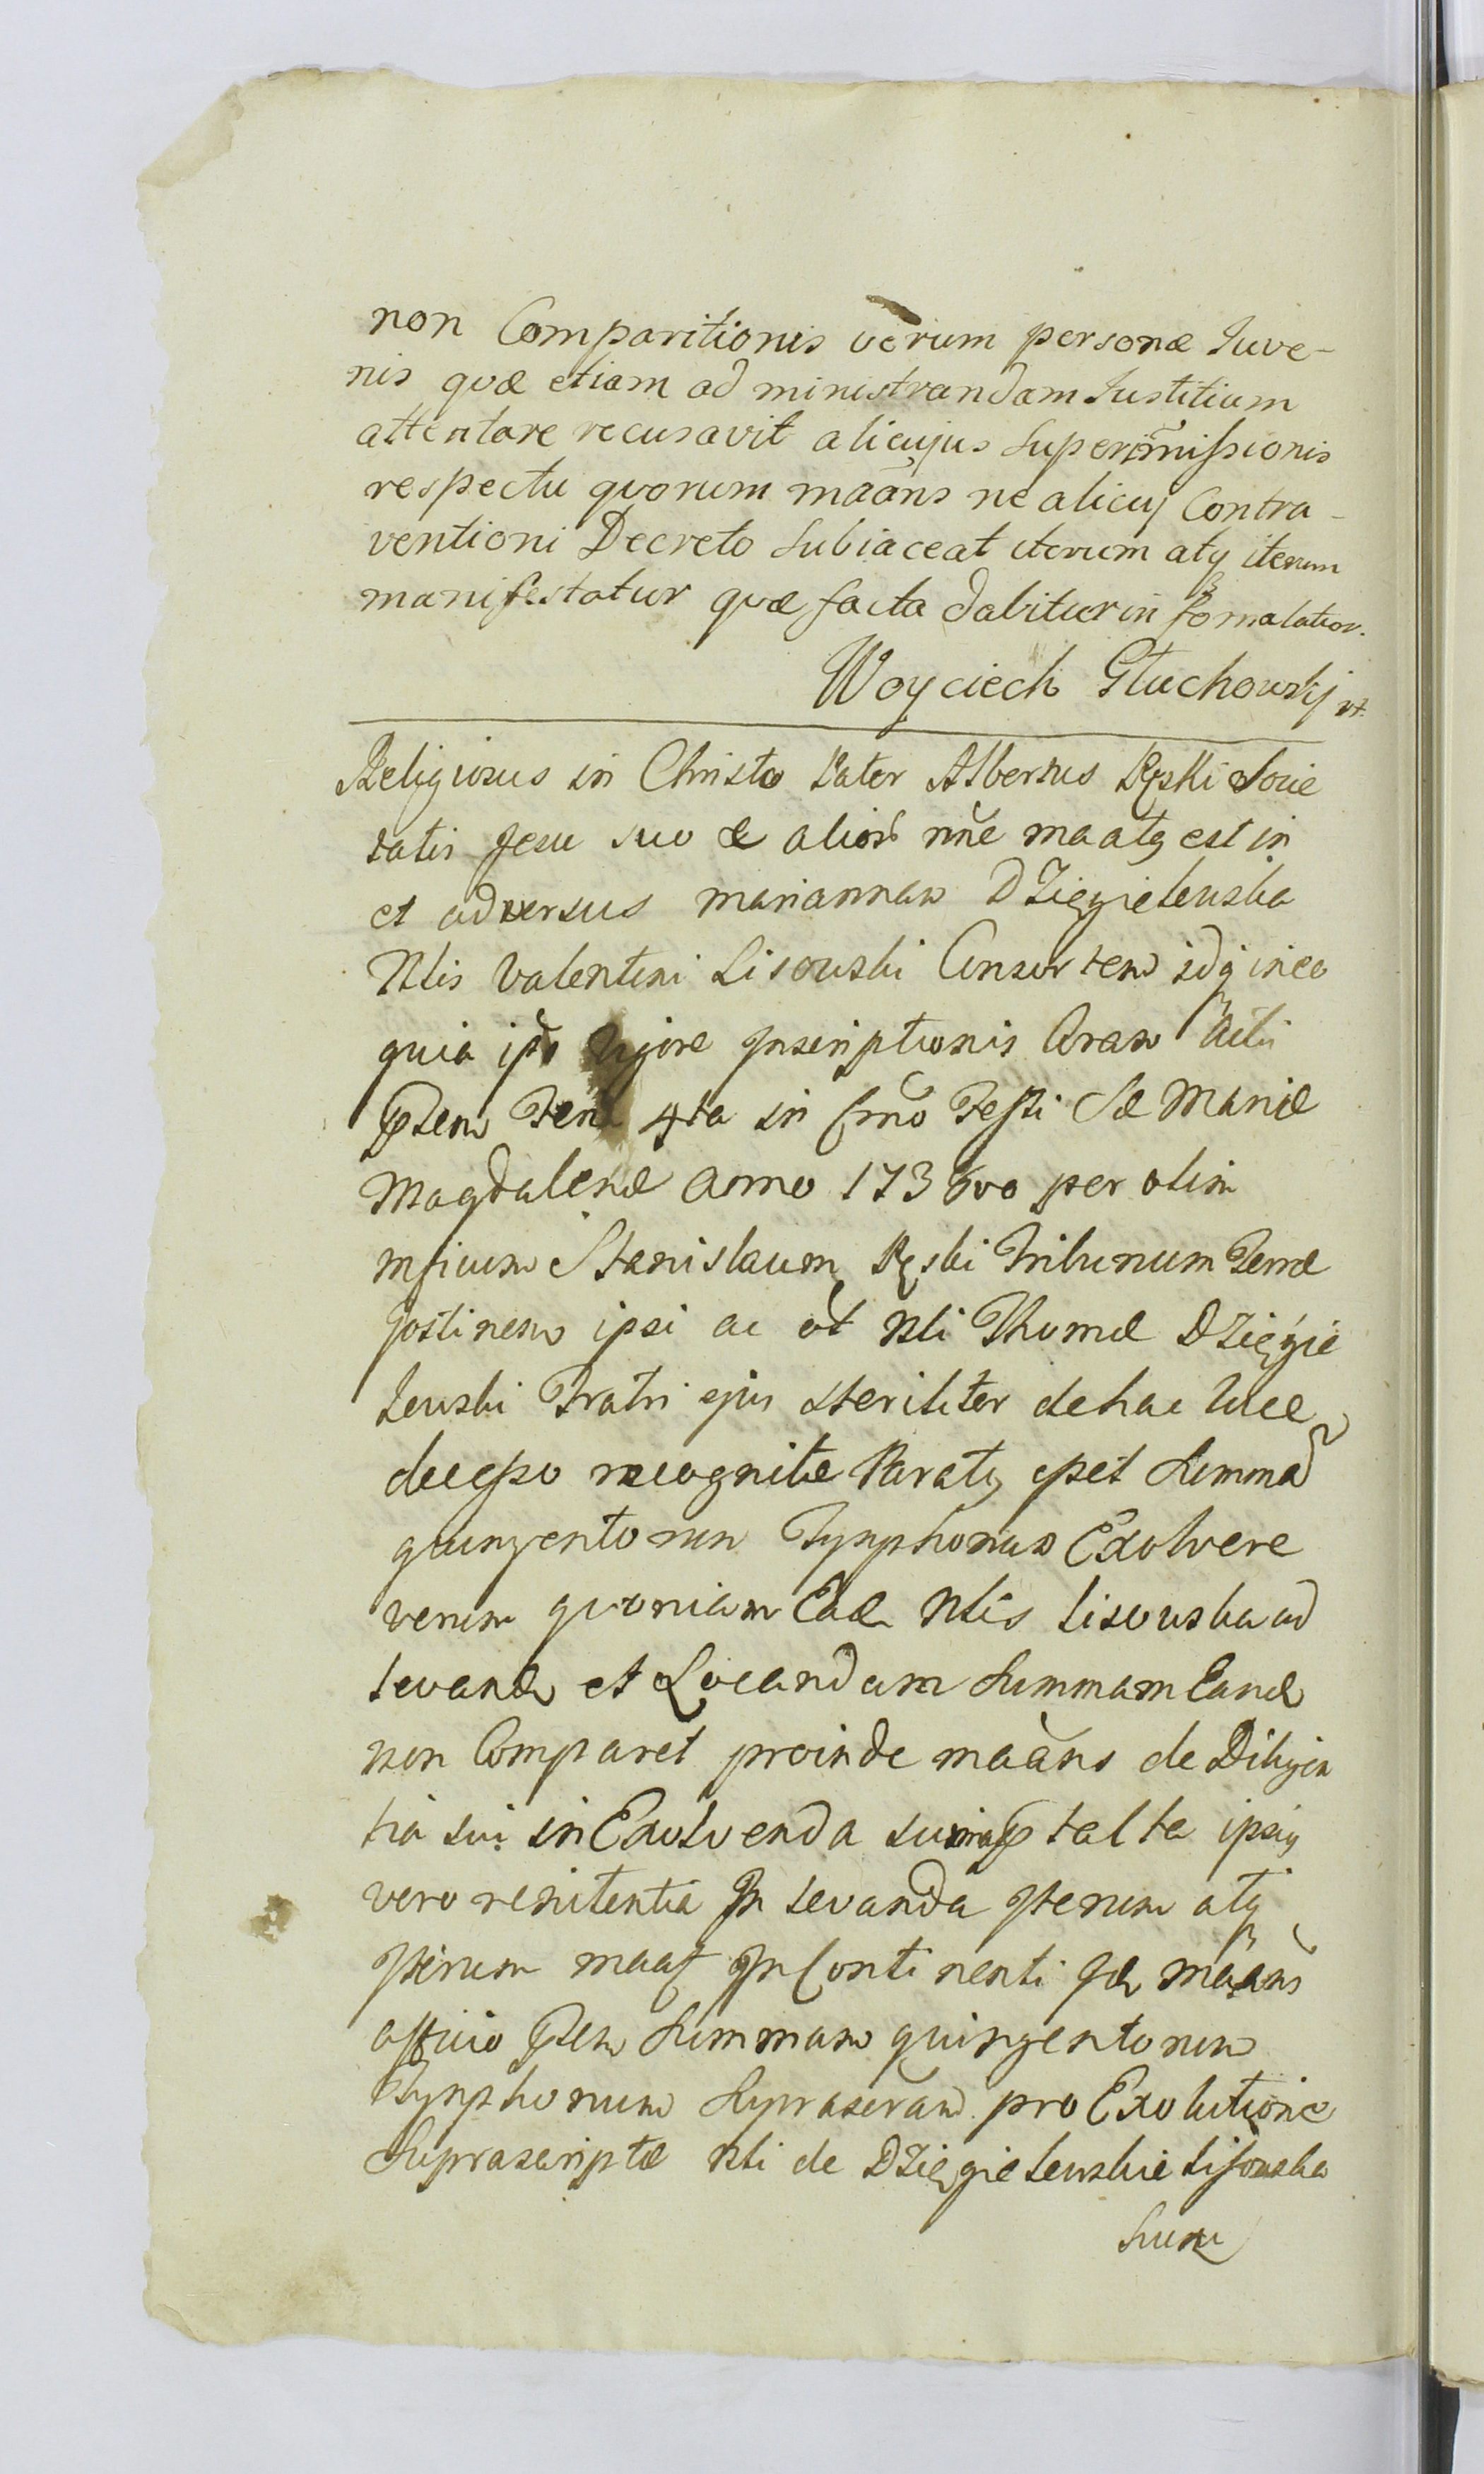 non Comparitionis verum personæ Juve-
nis quæ etiam ad ministrandam Justitiam
attentare recusavit alicujus Superin̄missionis
respectu quorum maāns ne alicuj Contra-
ventioni Decreto Subiaceat iterum atq iterum
manifestatur quæ facta dabitur in formalatior.
Woyciech Głuchowskj
Religiosus in Christo Pater Albertus Ręski Socie
tatis Jesu suo & alior nn̄e maatq est in
et adversus mariannam Dzięgielewska
Nlis Valentini Lisowski Consortem idq in eo
quia ips vigore Inscriptionis Coram
ptem feria 4ta in Crno Festi Sæ Mariæ
Magdalenæ anno 1736to per olim
mficum Stanislaum Ręski Tribunum Terræ
Gostinen ipsi ac et Nli Thomæ Dzięgie
lewski Fratri ejus steriliter de hac luce
decesso recognitæ Paratq esset Summā
quingentorum Tynphonum Exolvere
verum quoniam Eadem Nlis Lisowska ad
levand et Locandam Summam Eand
non Comparet proinde maāns de Diligen
tia sui in Exolvenda summa tal ta ipsiq
vero renitentia In levanda Iterum atq
Iterum maat In Continenti maāns
officio ptem Summam quingentorum
Tynphonum Suprascram pro Exolutione
Suprascriptæ Nli de Dzięgielewskie Lisowska